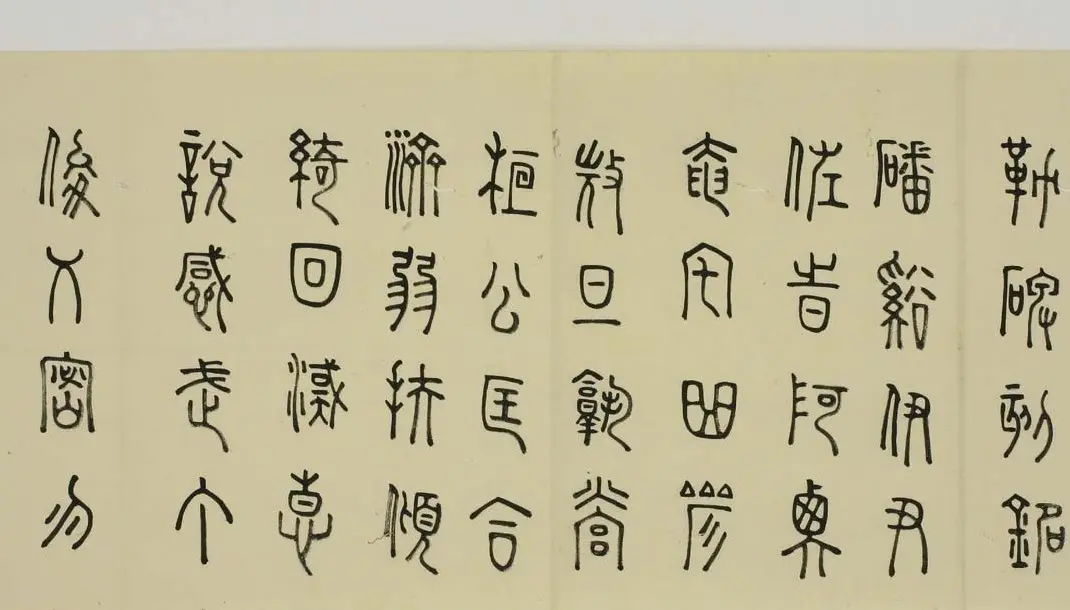 勒碑刻銘
磻谿伊尹
佐時阿衡
奄宅曲阜
微旦孰營
桓公匡合
濟弱扶傾
綺回漢惠
說感武丁
俊乂密勿